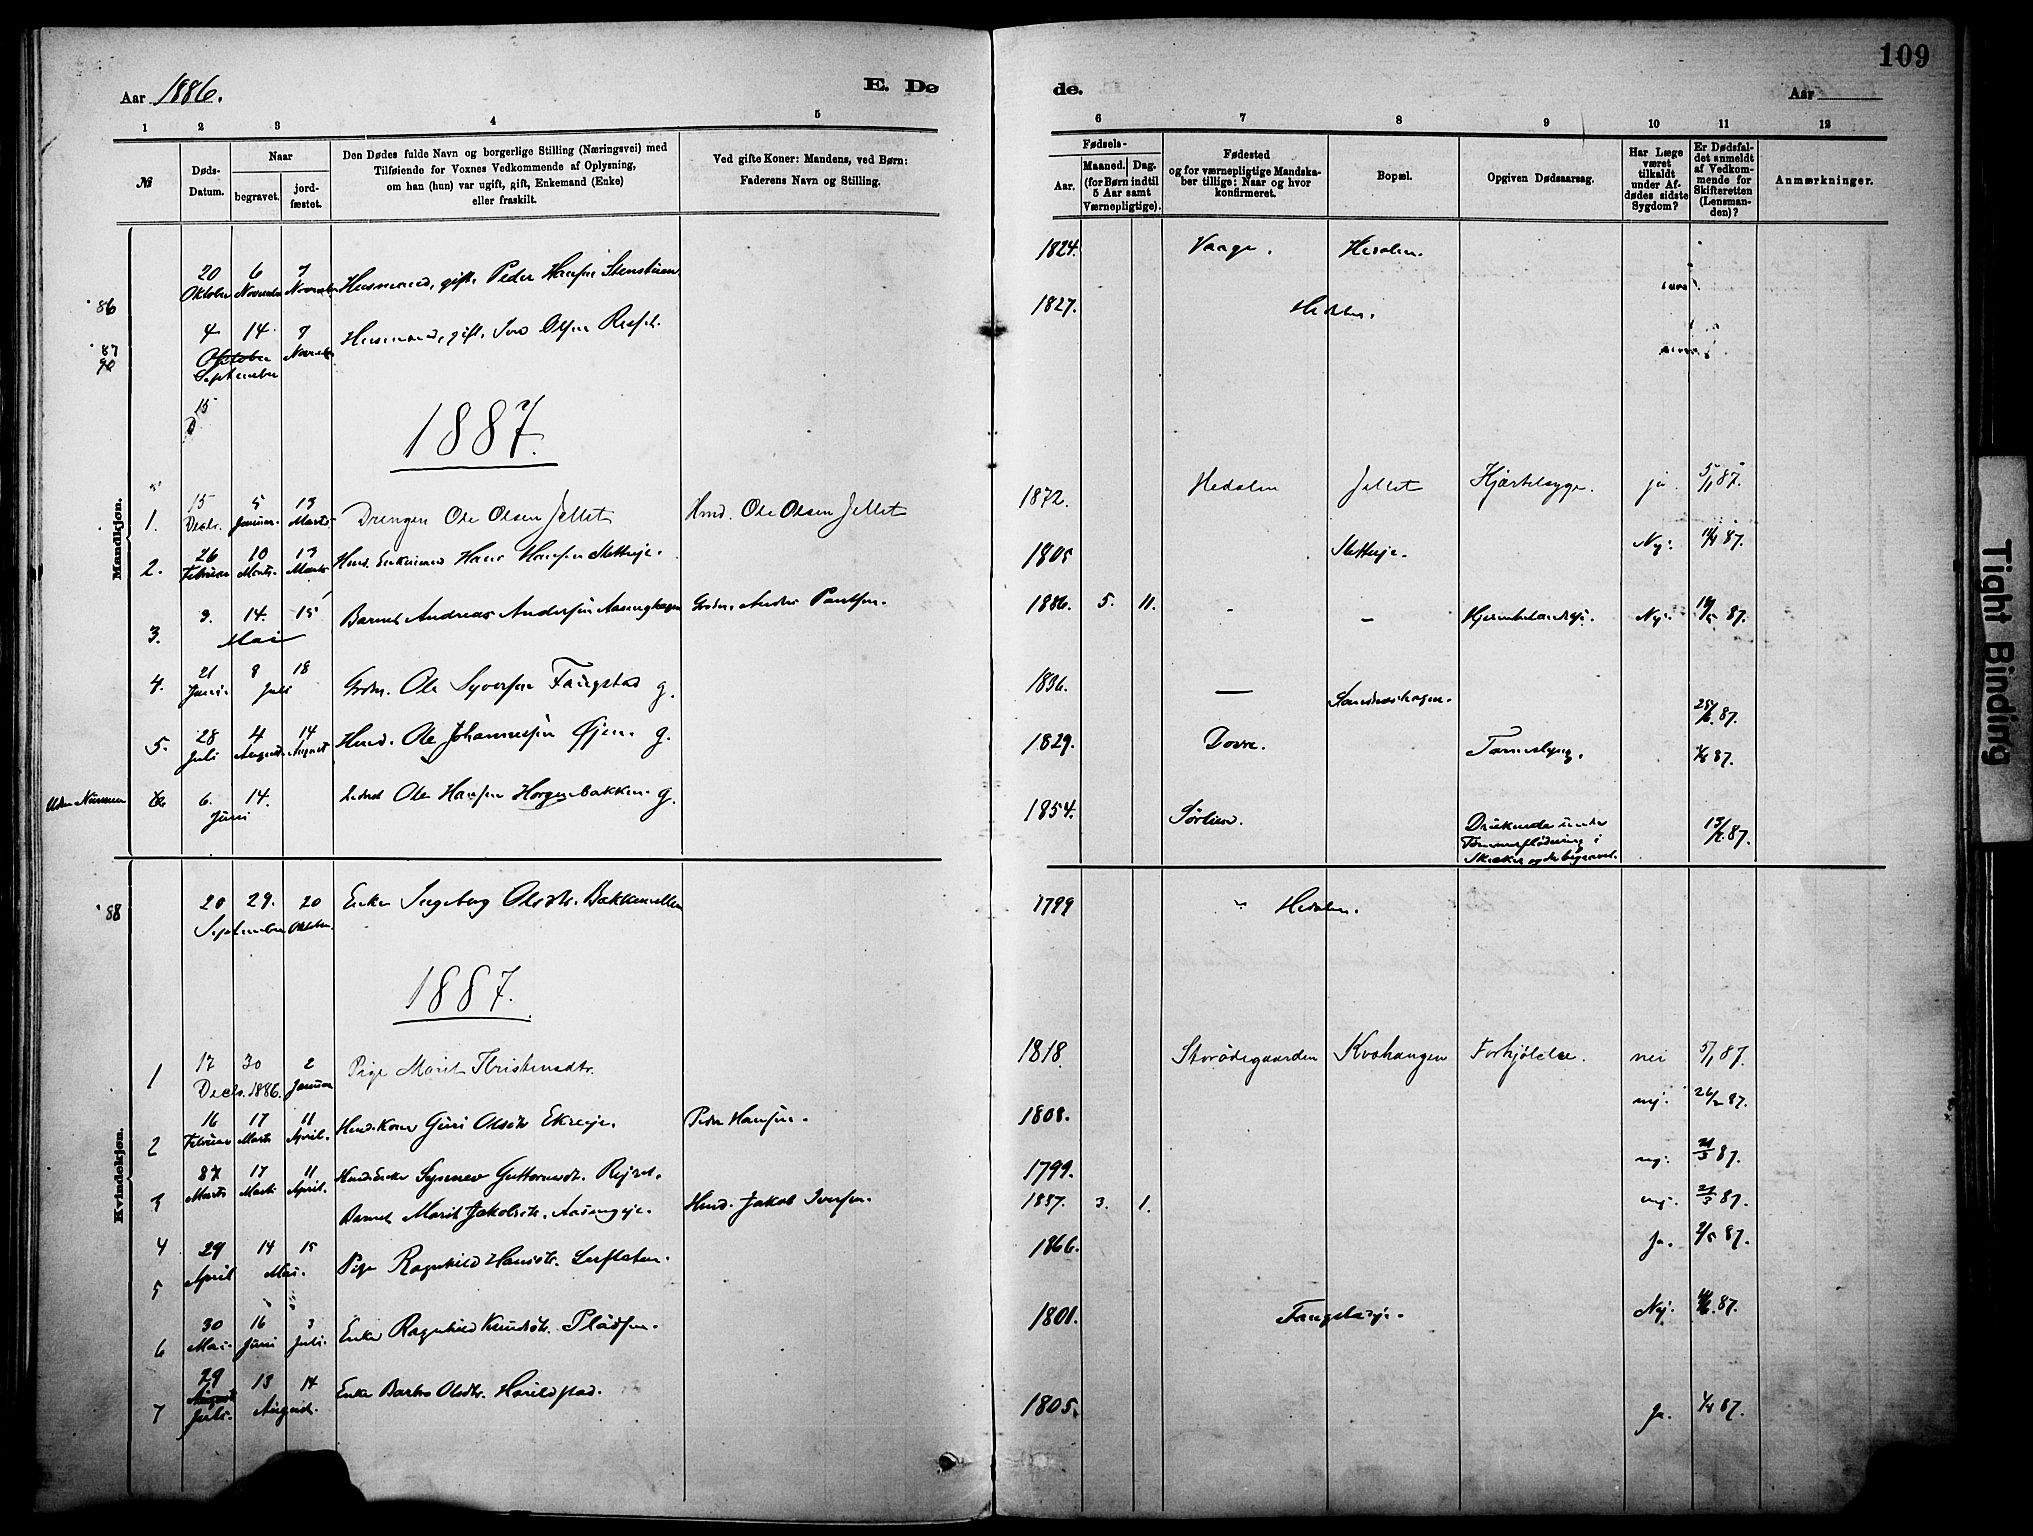 109
Aar 1886.
E. Dø
de.
Aar
1 2 3 4 5
6 7 8 9 10 11 12
№
Døds-
Datum.
Naar
begravet.
jord-
fæstet.
Den Dødes fulde Navn og borgerlige Stilling (Næringsvei) med
Tilføiende for Voxnes Vedkommende af Oplysning,
om han (hun) var ugift, gift, Enkemand (Enke)
eller fraskilt.
Ved gifte Koner: Mandens, ved Børn:
Faderens Navn og Stilling.
Fødsels-
Aar.
Maaned. Dag.
(for Børn indtil
5 Aar samt
Værnepligtige).
Fødested
og for værnepligtige Mandska-
ber tillige: Naar og hvor
konfirmeret.
Bopæl.
Opgiven Dødsaarsag.
Har Læge
været
tilkaldt
under Af-
dødes sidste
Sygdom?
Er Dødsfal-
det anmeldt
af Vedkom-
mende for
Skifteretten
(Lensman-
den)?
Anmærkninger.
Mandkjøn.
20 6 7
Oktober November November Husmand, gift, Peder Hansen 1824. Vaage. Hedalen.
'86
4 14 7
Oktober September November Husmand, gift, Iver Olsen 1827. Hedalen.
'87
90
15
D
1887.
1. 15 Decbr. 5 Januar. 13 Marts Drengen Ole Olsen Jellet Hmd. Ole Olsen Jellet 1872. Hedalen Jellet Hjærtesyge. ja 5/1 87.
2. 26 Februar 10 Marts. 13 Marts Hmd. Enkemand Hans Hansen Sletteeje. 1805 Sletteeje. Nej. 87.
3. 9. 14. 15 Mai Barnet Andreas Andersen Grdm. Anders Paulsen. 1886. 5. 11. - - Nej. 87.
4. 21 Juni. 8 18 Juli Grdm. Ole Syversen Faugstad g. 1836. — 87.
5. 28 Juli 4 August. 14 August Hmd. Ole Johannesen Øjen. g. 1829. Dovre. 87.
Uden Nummer
6. 14. Juni Ole Hansen Horgenbakken g. 1854. Sørlien. Druknede under Tømmerflødning i og der begravet. 87.
Kvindekjøn.
'88
20 29. 20
September Oktober. Enke Ingeborg Olsdtr. 1799 " Hedalen.
1887.
1 17 30 2 Decbr. 1886. Januar Pige Marit Kristensdtr. 1818. Storødegaarden Kvahaugen Forkjølelse. nei 5/1 87.
2 16 Februar 17 Marts 11 April. Hmd. Kone Guri Olsdtr Ekreeje. Peder Hansen. 1808. nej. 26/2 87.
3 87 Marts 17 Marts 11 April. Hmd. Enke Synnev Guttormsdtr. 1799. nej. 87.
4 Barnet Marit Jakobsdtr. Aasengeje. Hmd. Jakob Iversen. 1887. 3. 1. nej. 87.
5 29 April 14 15 Mai. Pige Ragnhild Hansdtr. 1866. Ja. 2/5 87.
6 30 Mai. 16 Juni 3 Juli. Enke Ragnhild Knudsdtr. Pladsen. 1801. Faugstadeje. Nej. 87.
7 29 August Juli. 13 14 August. Enke Barbro Olsdtr. Harildstad. 1805. Ja. 87.
Tight Binding